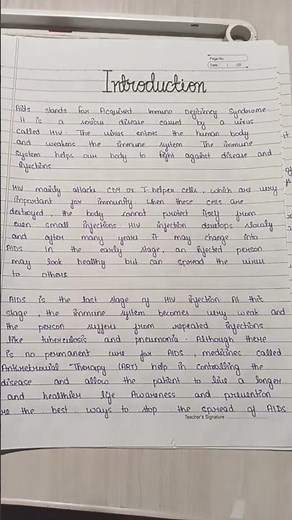 Page No.
Date
Introduction
AIDS stands for Acquired Immuno Deficiency Syndrome.
It is a serious disease caused by a virus
called HIV. The virus enters the human body
and weakens the immune system. The immune
system helps our body to fight against disease and
infections.
HIV mainly attacks CD4 or T-helper cells, which are very
important for immunity when these cells are
destroyed, the body cannot protect itself from
even small infections HIV infection develops slowly
and after many years it may change into
AIDS in the early stage, an infected person
may look healthy but can spread the virus
to others.
AIDS is the last stage of HIV infection At this
stage, the immune system becomes very weak and
the person suffers from repeated infections
like tuberculosis and pneumonia. Although there
is no permanent cure for AIDS, medicines called
Antiretroviral Therapy (ART) help in controlling the
disease and allow the patient to live a longer
and healthier life Awareness and prevention
are the best ways to stop the spread of AIDS
Teacher's Signature